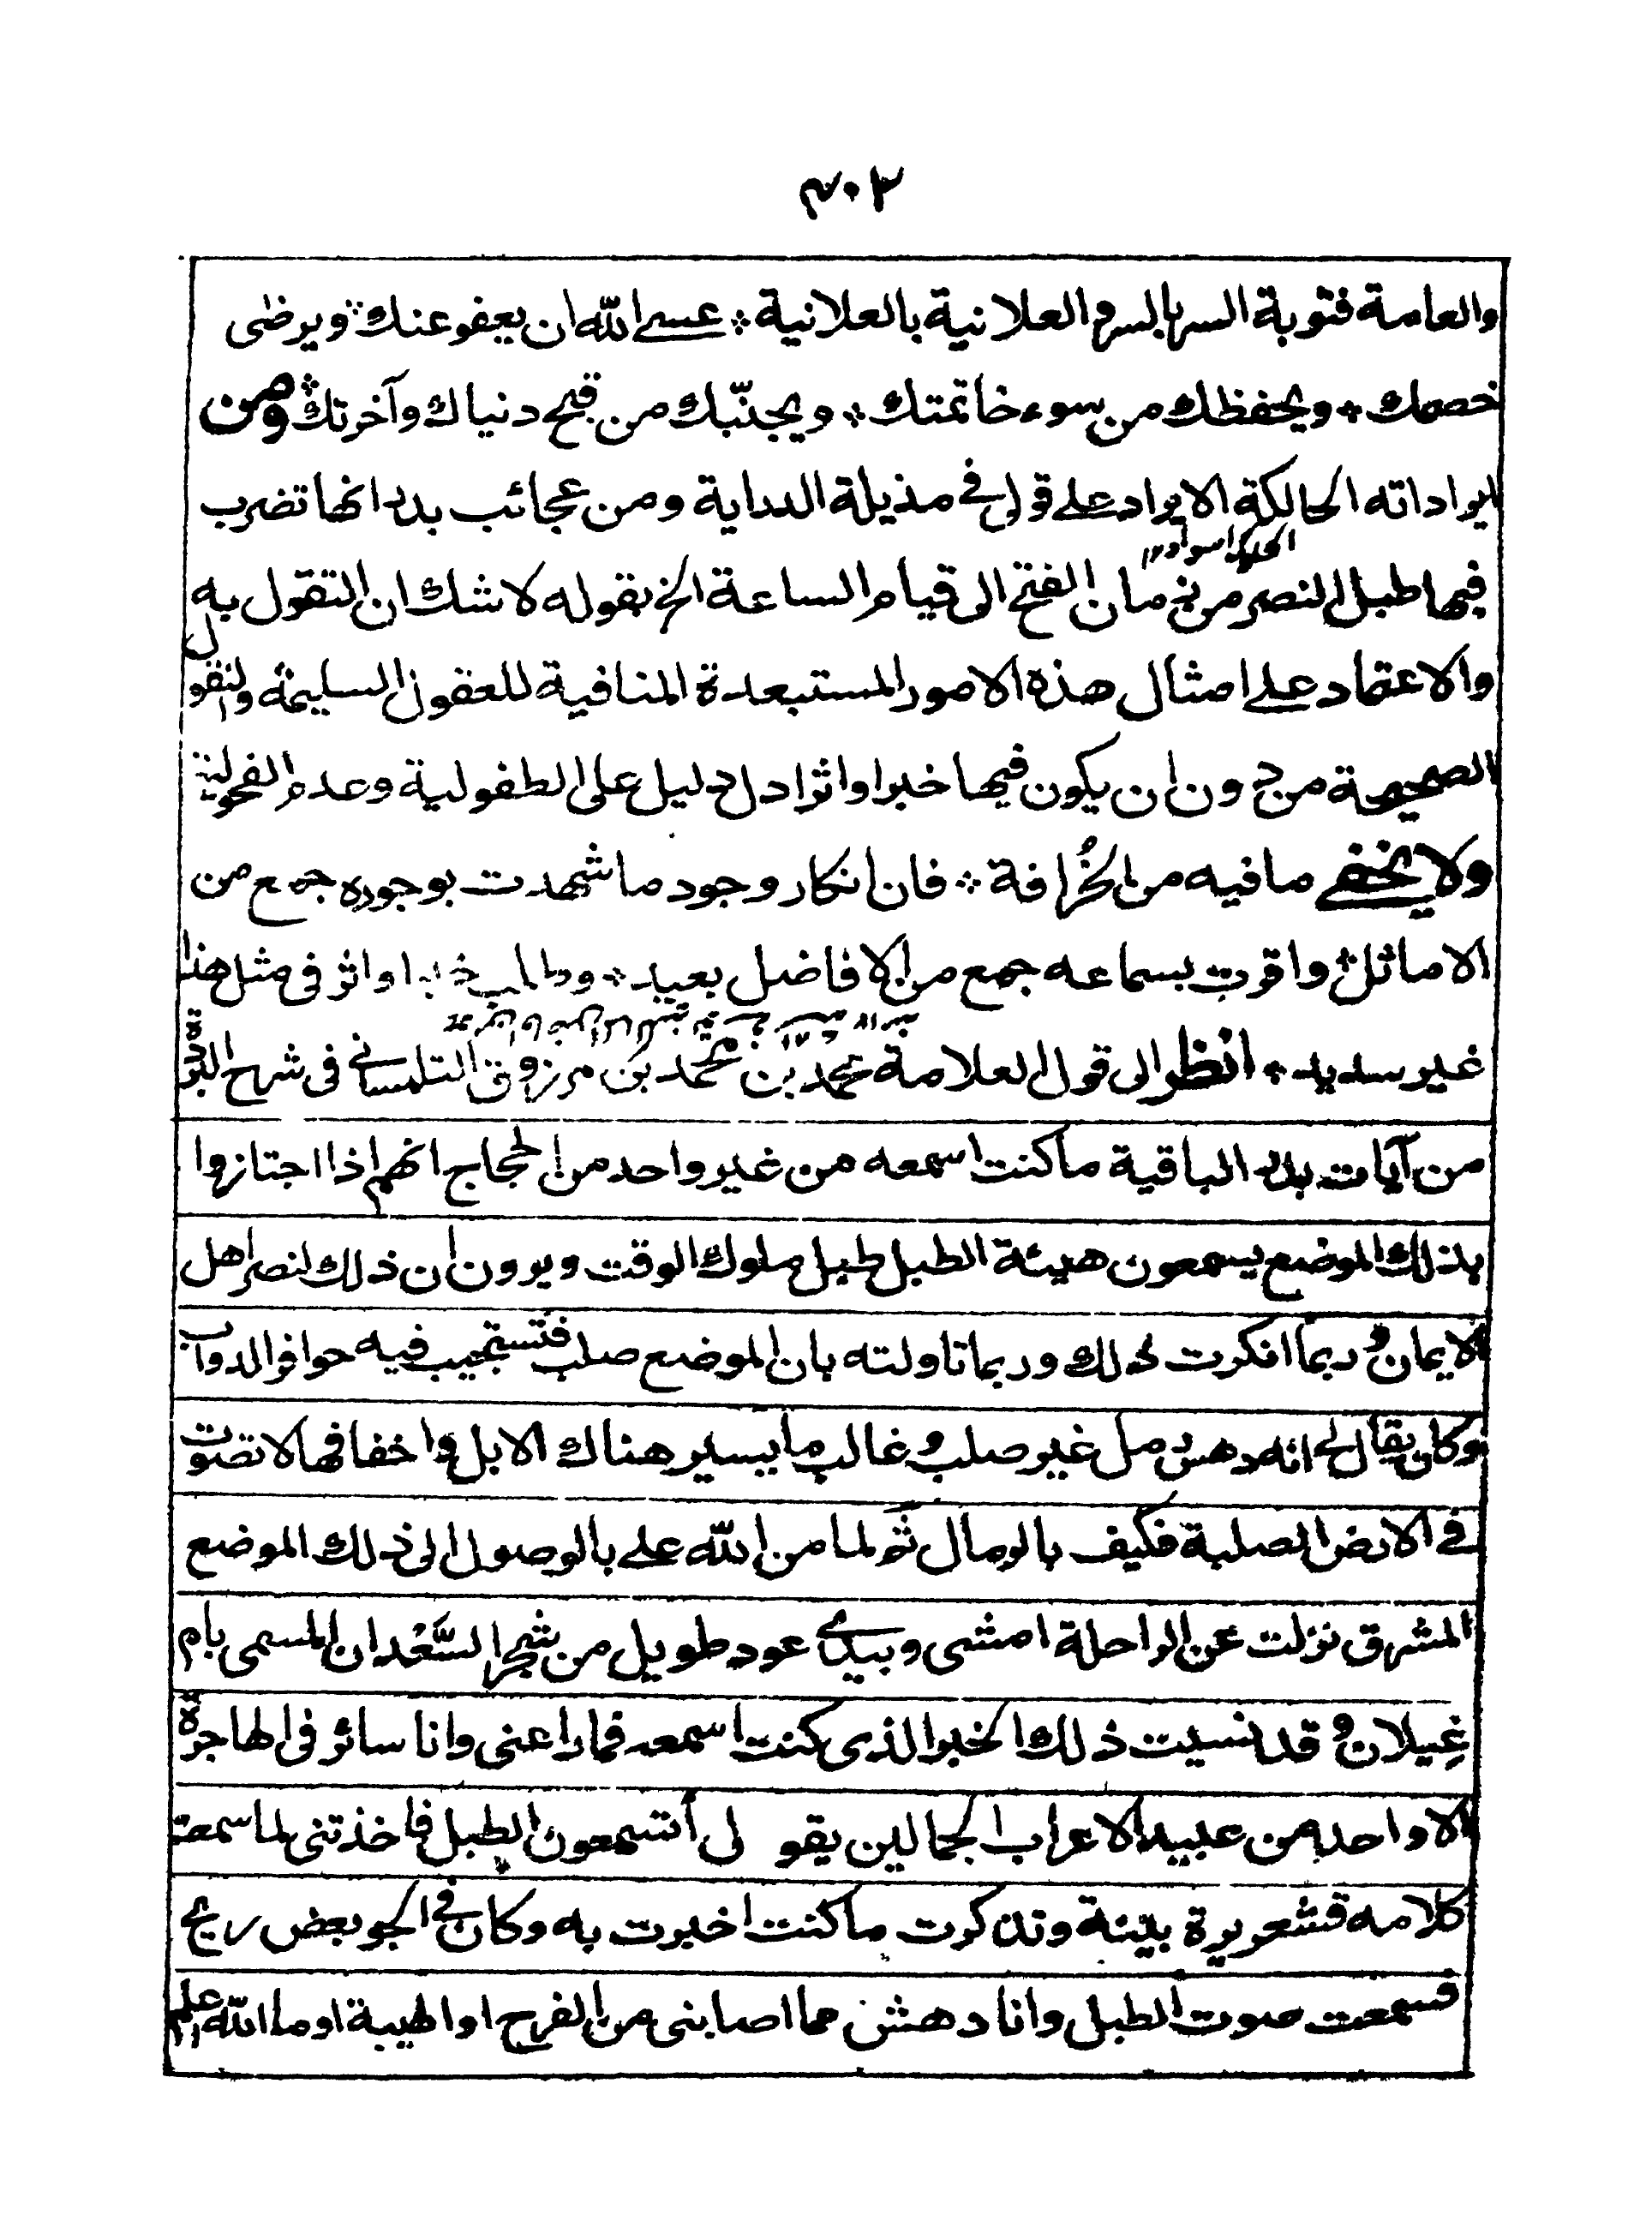 ٣٠٢
والعامة فتوبة السر بالسر والعلانية بالعلانية ؞ عسى الله ان يعفو عنك ؞ ويرضى
خصمك ؞ ويحفظك من سوء خاتمتك ؞ ويجنّبك من قبح دنياك وآخرتك ؞ ومن
ايراداته الحالكة الايراد على قولى فى مذيلة الدراية ومن عجائب بدر انها تضرب
فيها طبل النصر من زمان الفتح الى قيام الساعة الخ بقوله لا شك ان التقول به
والاعتماد على امثال هذه الامور المستبعدة المنافية للعقول السليمة والنقول
الصحيحة من دون ان يكون فيها خبر او اثر ادل دليل على الطفولية وعدم الفحولية
ولا يخفى ما فيه من الخُرافة ؞ فان انكار وجود ما شهدت بوجوده جمع من
الاماثل ؞ واقرت بسماعه جمع من الافاضل بعيد ؞ وطلب خبر او اثر فى مثل هذا
غير سديد ؞ انظر الى قول العلامة محمد بن محمد بن مرزوق التلمسانى فى شرح البردة
من آيات بدر الباقية ما كنت اسمعه من غير واحد من الحجاج انهم اذا اجتازوا
بذلك الموضع يسمعون هيئة الطبل طبل ملوك الوقت ويرون ان ذلك لنصر اهل
الايمان وربما انكرت ذلك وربما تاولته بان الموضع صلب فتستجيب فيه حوافر الدواب
وكان يقال لى انه دهس رمل غير صلب وغالب ما يسير هناك الابل واخفافها لا تصوت
فى الارض الصلبة فكيف بالرمال ثم لما من الله على بالوصول الى ذلك الموضع
المشرق نزلت عن الراحلة امشى وبيدى عود طويل من شجر السَّعْدان المسمى بام
غِيلان وقد نسيت ذلك الخبر الذى كنت اسمعه فما راعنى وانا سائر فى الهاجرة
الا واحد من عبيد الاعراب الجمالين يقو لى أتسمعون الطبل فاخذتنى لما سمعت
كلامه قشعريرة بيّنة وتذكرت ما كنت اخبرت به وكان فى الجو بعض ريح
فسمعت صوت الطبل وانا دهش مما اصابنى من الفرح او الهيبة او ما الله اعلم